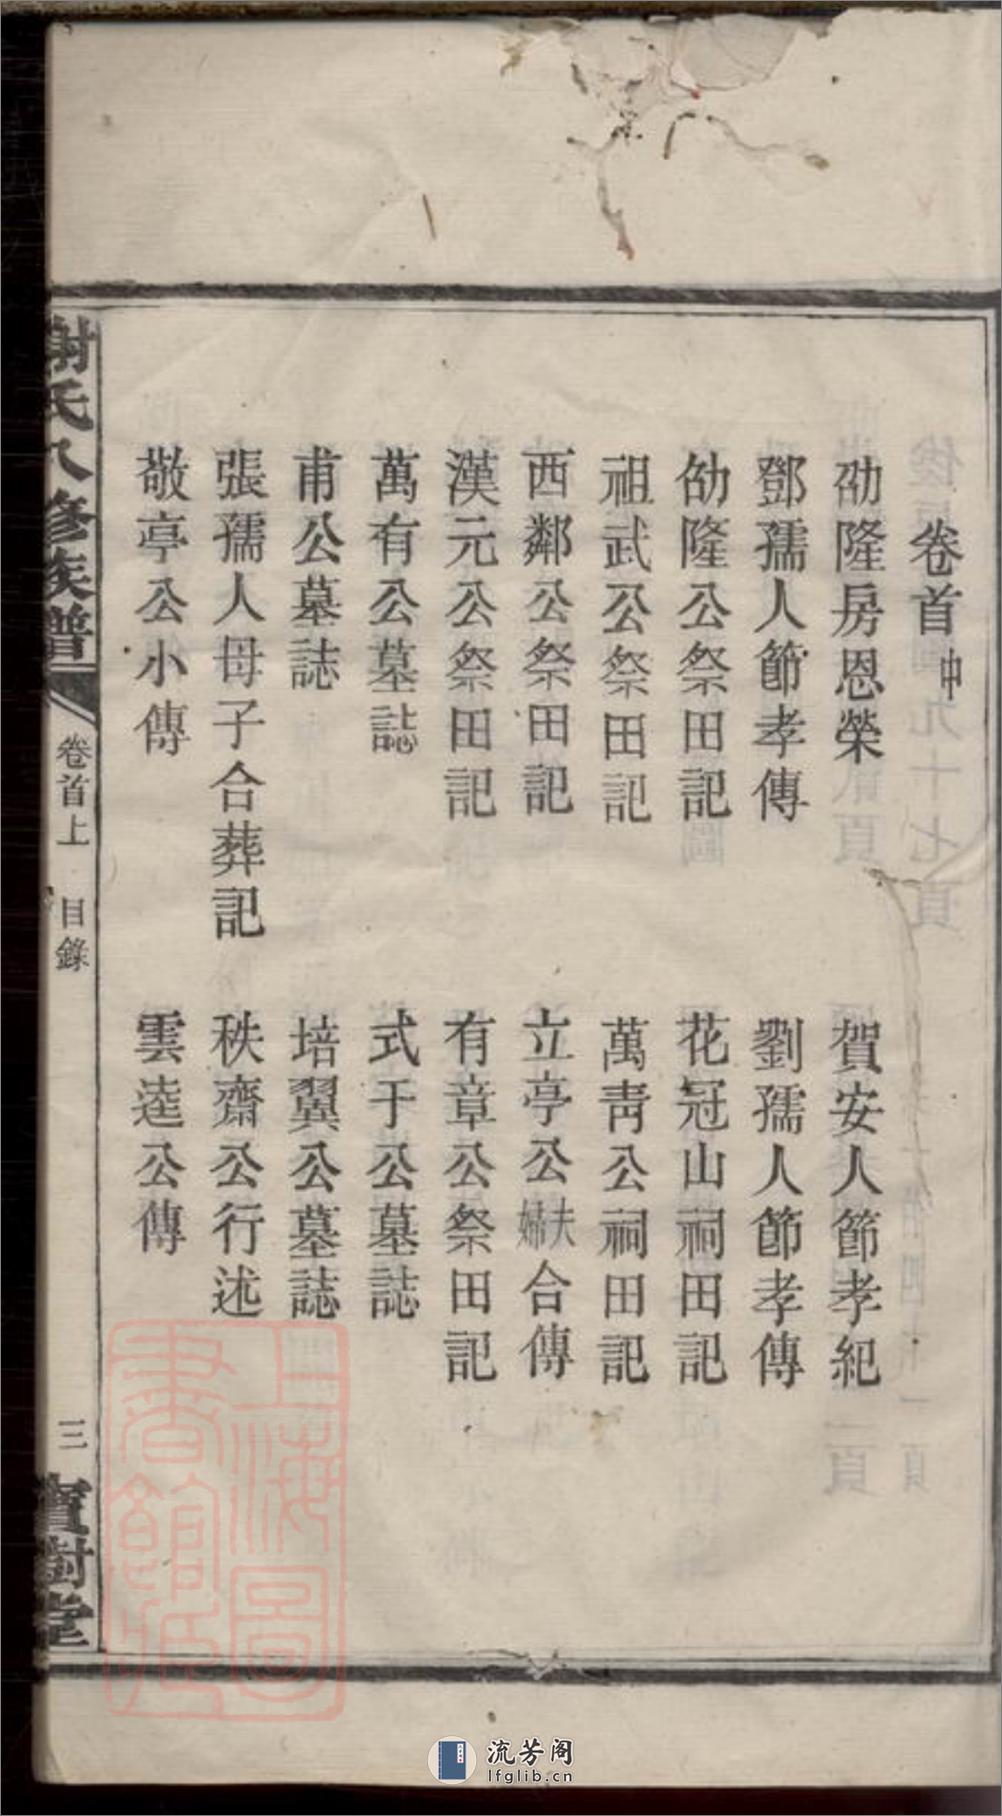 卷首中
劭隆房恩榮
賀安人節孝紀
鄧孺人節孝傳
劉孺人節孝傳
劭隆公祭田記
花冠山祠田記
祖武公祭田記
萬靑公祠田記
西鄰公祭田記
立亭公夫婦合傳
漢元公祭田記
有章公祭田記
萬有公墓誌
式于公墓誌
甫公墓誌
培翼公墓誌
張孺人母子合葬記
秩齋公行述
敬亭公小傳
雲逵公傳
謝氏八修族譜
卷首上
目錄
三
寶樹堂
上海圖書館藏
流芳阁
lfglib.cn